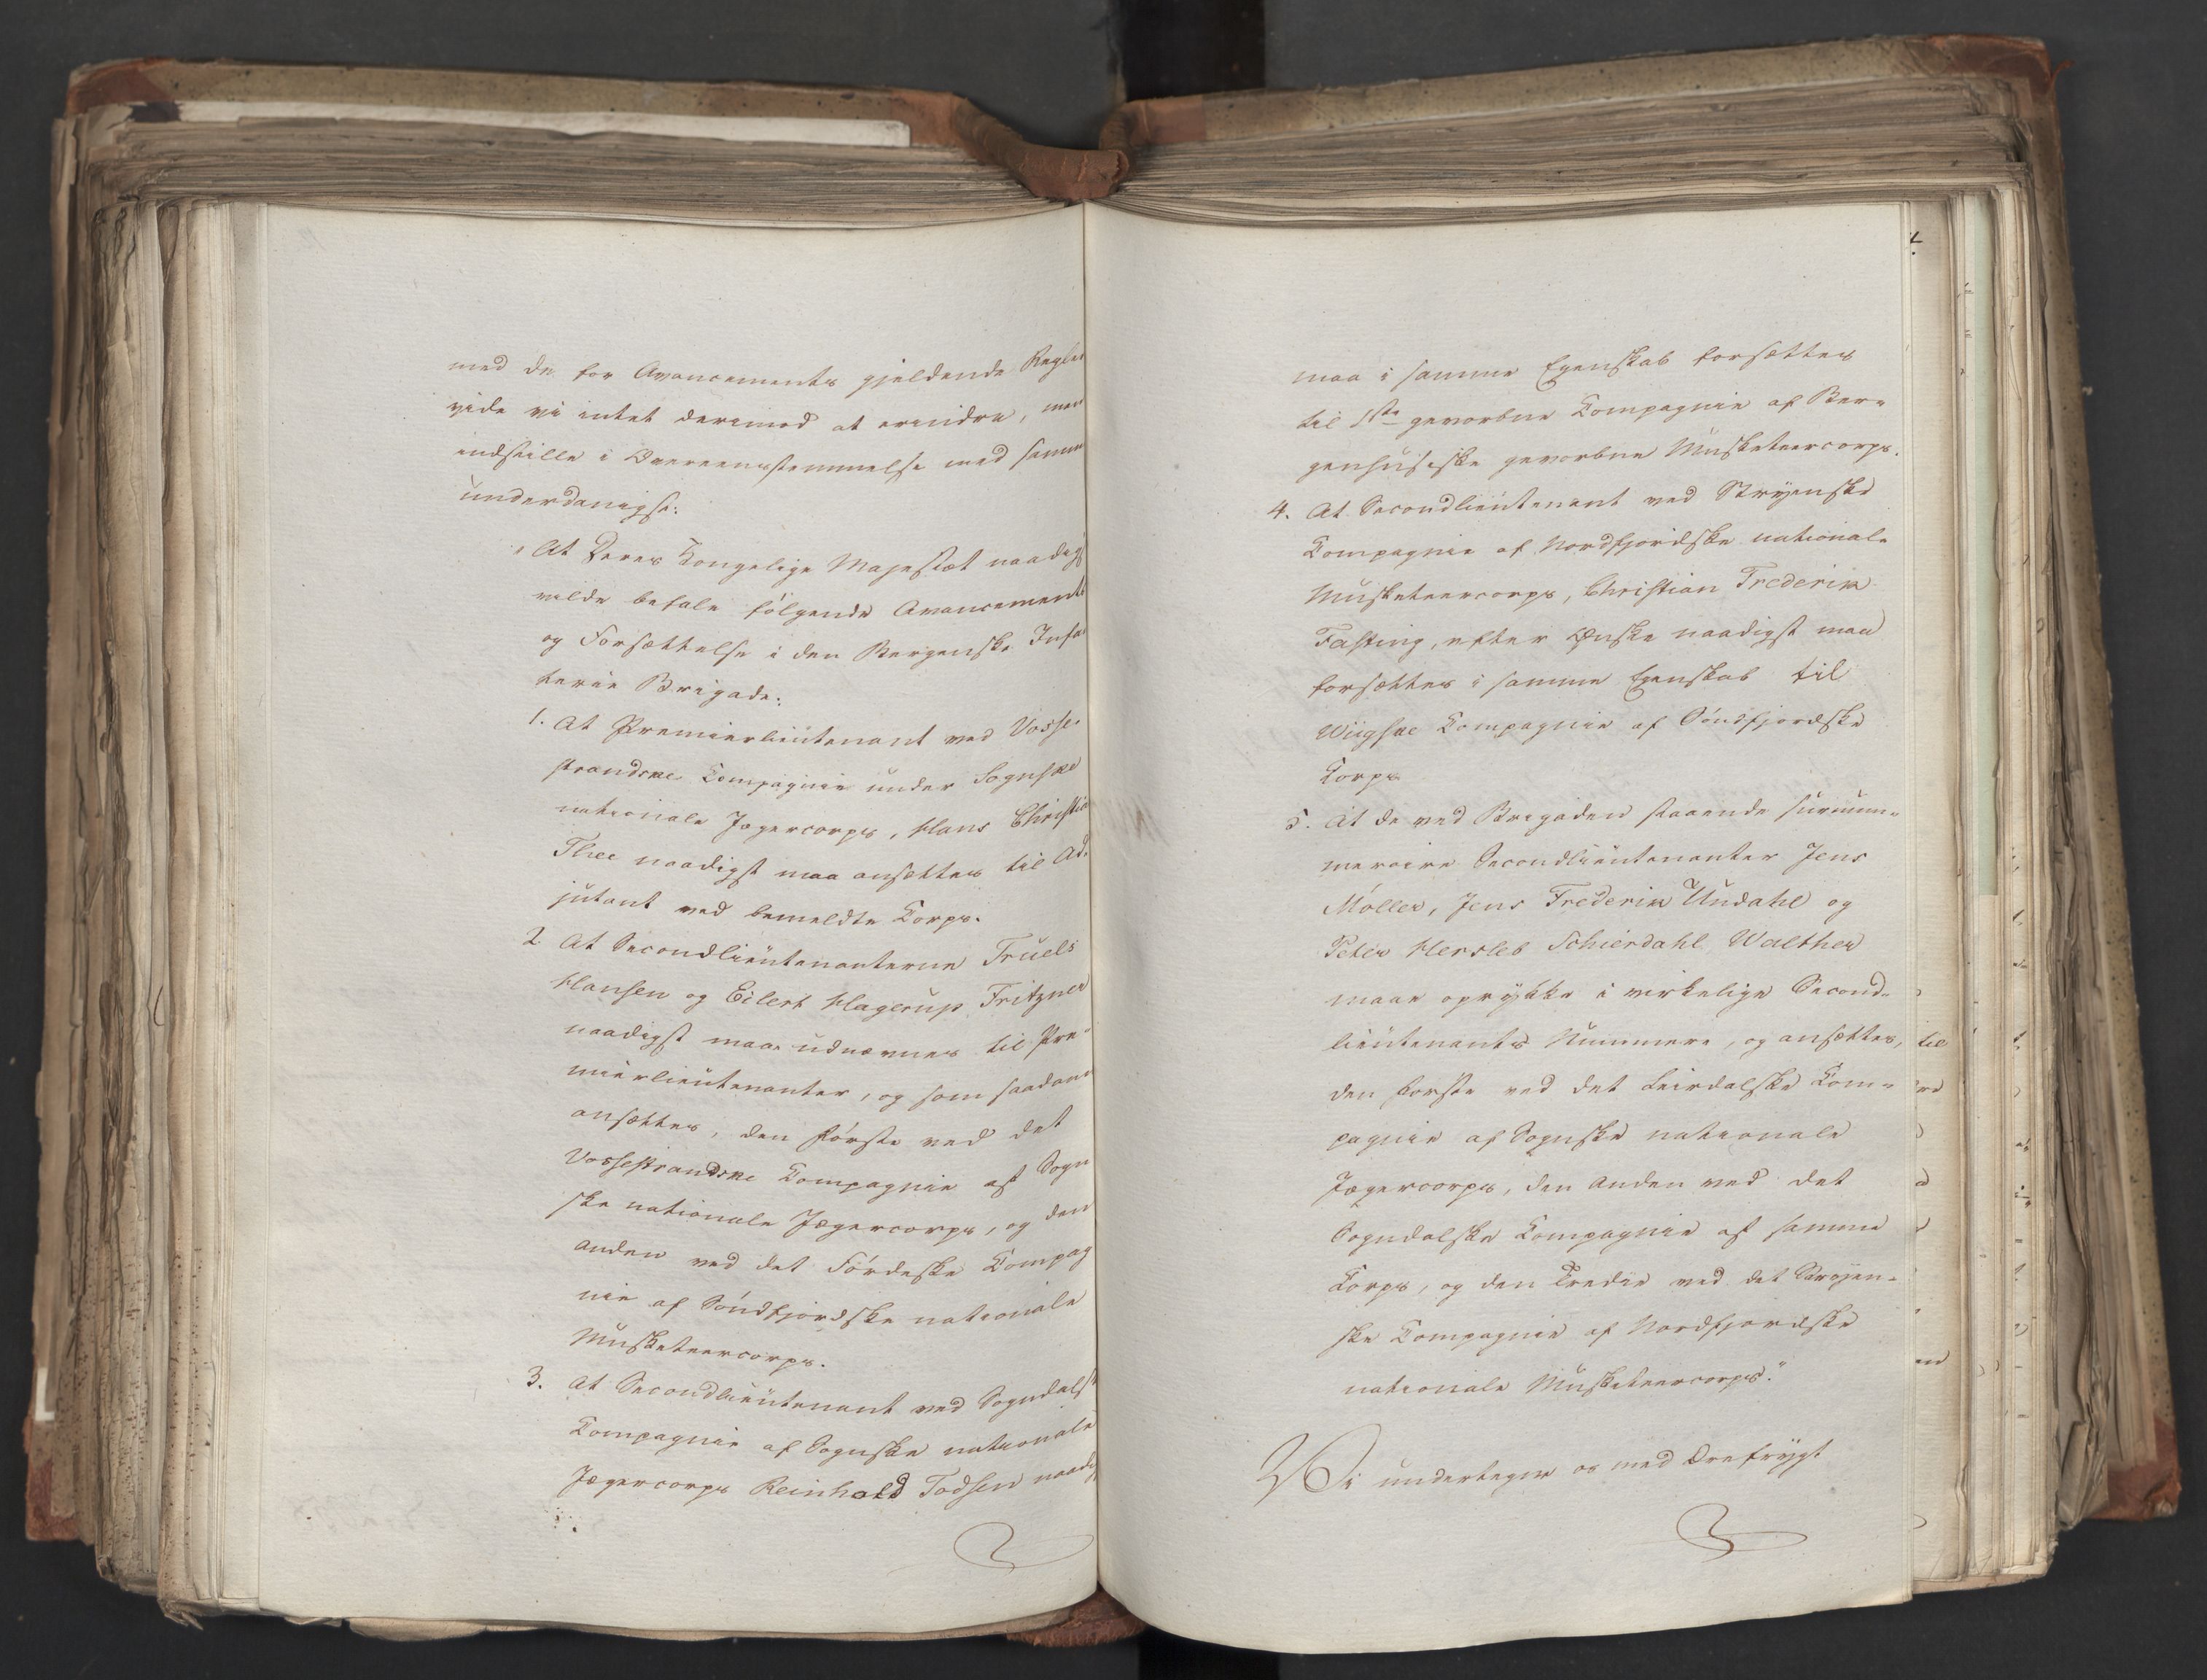 med de for Avancements gjeldende Regler
vide vi intet derimod at erindre, men
indstille i Overeensstemmelse med samme
underdanigst:
"At Deres Kongelige Majestæt naadigst
vilde befale følgende Avancements
og Forsættelse i den Bergenske Infan
terie Brigade:
1. At Premierlieutenant ved Vosse-
strandske Compagnie under Sognske
nationale Jægercorps, Hans Christie
Thee naadigst maa ansættes til Ad-
jutant ved bemeldte Corps.
2 At Secondlieutenanterne Truels
Hansen og Eilert Hagerup Fritzner
naadigst maae udnævnes til Pre-
mierlieutenanter, og som saadane
ansættes, den første ved det
Vossestrandske Compagnie af Sogn
ske nationale Jægercorps, og den
anden ved det Førdeske Compag
nie af Søndfjordske nationale
Musketeercorps.
3. At Secondlieutenant ved Sogndalske
Compagnie af Sognske nationale
Jægercorps Reinhold Todsen naadigst
maa i samme Egenskab forsættes
til 1ste gevorbne Compagnie af Ber-
genhusiske gevorbne Musketeercorps.
4. At Secondlieutenant ved Stryenske
Compagnie af Nordfjordske nationale
Musketeercorps, Christian Frederik
Fasting, efter Ønske naadigst maa
forsættes i samme Egenskab til
Wiigske Compagnie af Søndfjordske
Corps
5. At de ved Brigaden staaende surnum-
meraire Secondlieutenanter Jens
Møller, Jens Frederik Undahl og
Peter Hersleb Schierdahl Walther
maae oprykke i virkelige Second-
lieutenants Nummere, og ansættes,
den første ved det Leirdalske Com-
pagnie af Sognske nationale
Jægercorps, den Anden ved det
Sogndalske Compagnie af samme
Corps, og den Tredie ved det Stryen-
ske Compagnie af Nordfjordske
nationale Musketeercorps."
Vi undertegne os med Ærefrygt